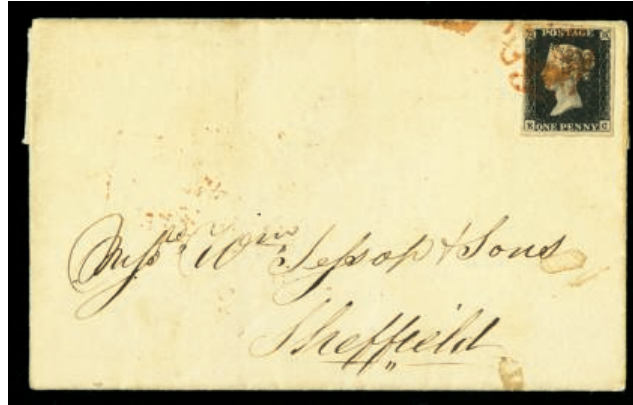 POSTAGE
ONE PENNY
Messrs Wm Jessop & Sons
Sheffield